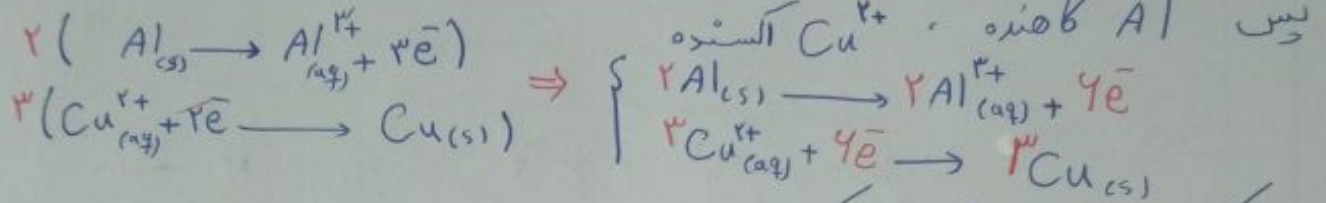 پس Al کاهنده . Cu²⁺ اکسنده
۲( Al(s) → Al³⁺(aq) + ۳e⁻ )
۳(Cu²⁺(aq) + ۲e⁻ → Cu(s)) ⇒ {
۲Al(s) → ۲Al³⁺(aq) + ۶e⁻
۳Cu²⁺(aq) + ۶e⁻ → ۳Cu(s)